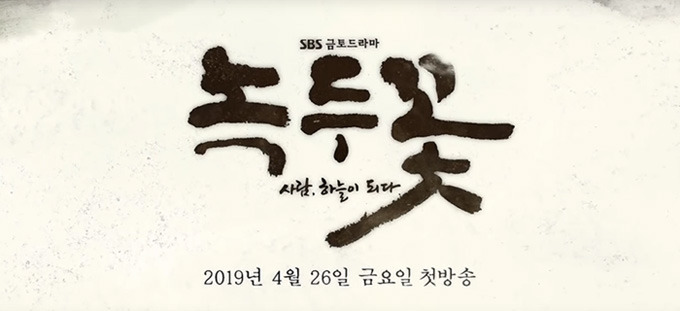 SBS 금토드라마
녹두꽃
사람, 하늘이 되다
2019년 4월 26일 금요일 첫방송